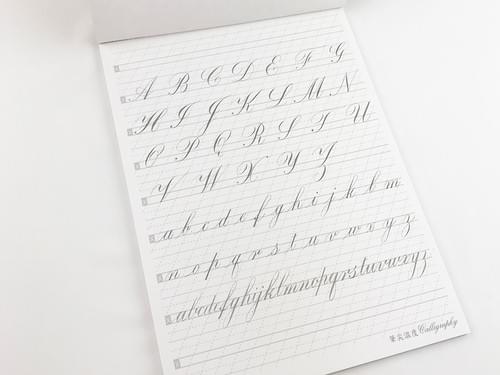 A B C D E F G
H I J K L M N
O P Q R S T U
V W X Y Z
a b c d e f g h i j k l m
n o p q r s t u v w x y z
abcdefghijklmnopqrstuvwxyz
筆尖溫度Calligraphy